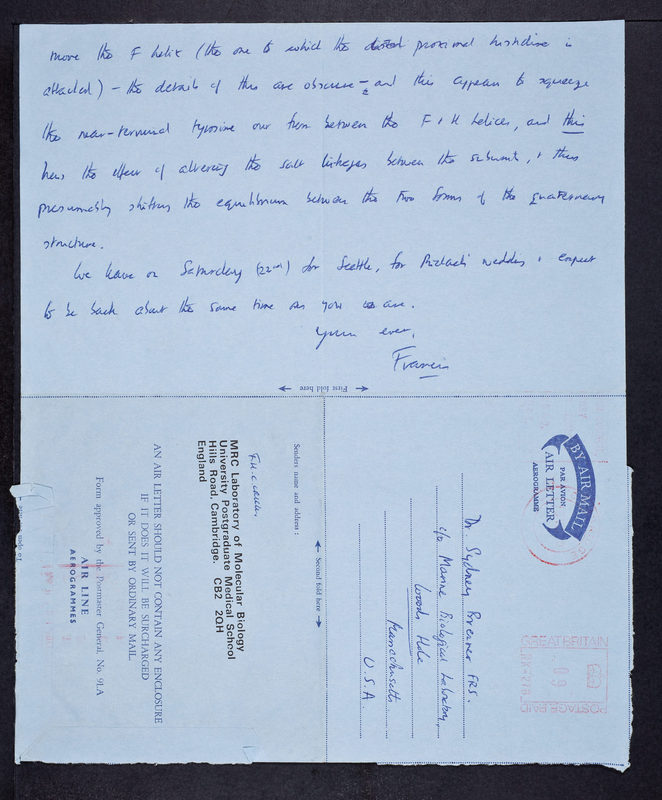 move the F helix (the one to which the proximal histidine is
attached) – the details of this are obscure – and this appears to squeeze
the near-terminal tyrosine out from between the F + H helices, and this
has the effect of altering the salt linkages between the subunits, + thus
presumably shifting the equilibrium between the two forms of the quaternary
structure.
We leave on Saturday (22nd) for Seattle, for wedding + expect
to be back about the same time as you are.
Yours ever,
Francis
First fold here
BY AIR MAIL
PAR AVION
AIR LETTER
AEROGRAMME
GREAT BRITAIN
POSTAGE PAID
Dr. Sydney Brenner FRS.
c/o Marine Biological Laboratory,
Woods Hole
Massachusetts
U.S.A.
Second fold here
Senders name and address:
F.H.C. Crick,
MRC Laboratory of Molecular Biology
University Postgraduate Medical School
Hills Road, Cambridge. CB2 2QH
England
AN AIR LETTER SHOULD NOT CONTAIN ANY ENCLOSURE
IF IT DOES IT WILL BE SURCHARGED
OR SENT BY ORDINARY MAIL.
AIR LINE
AEROGRAMMES
Form approved by the Postmaster General, No. 91.A
To open